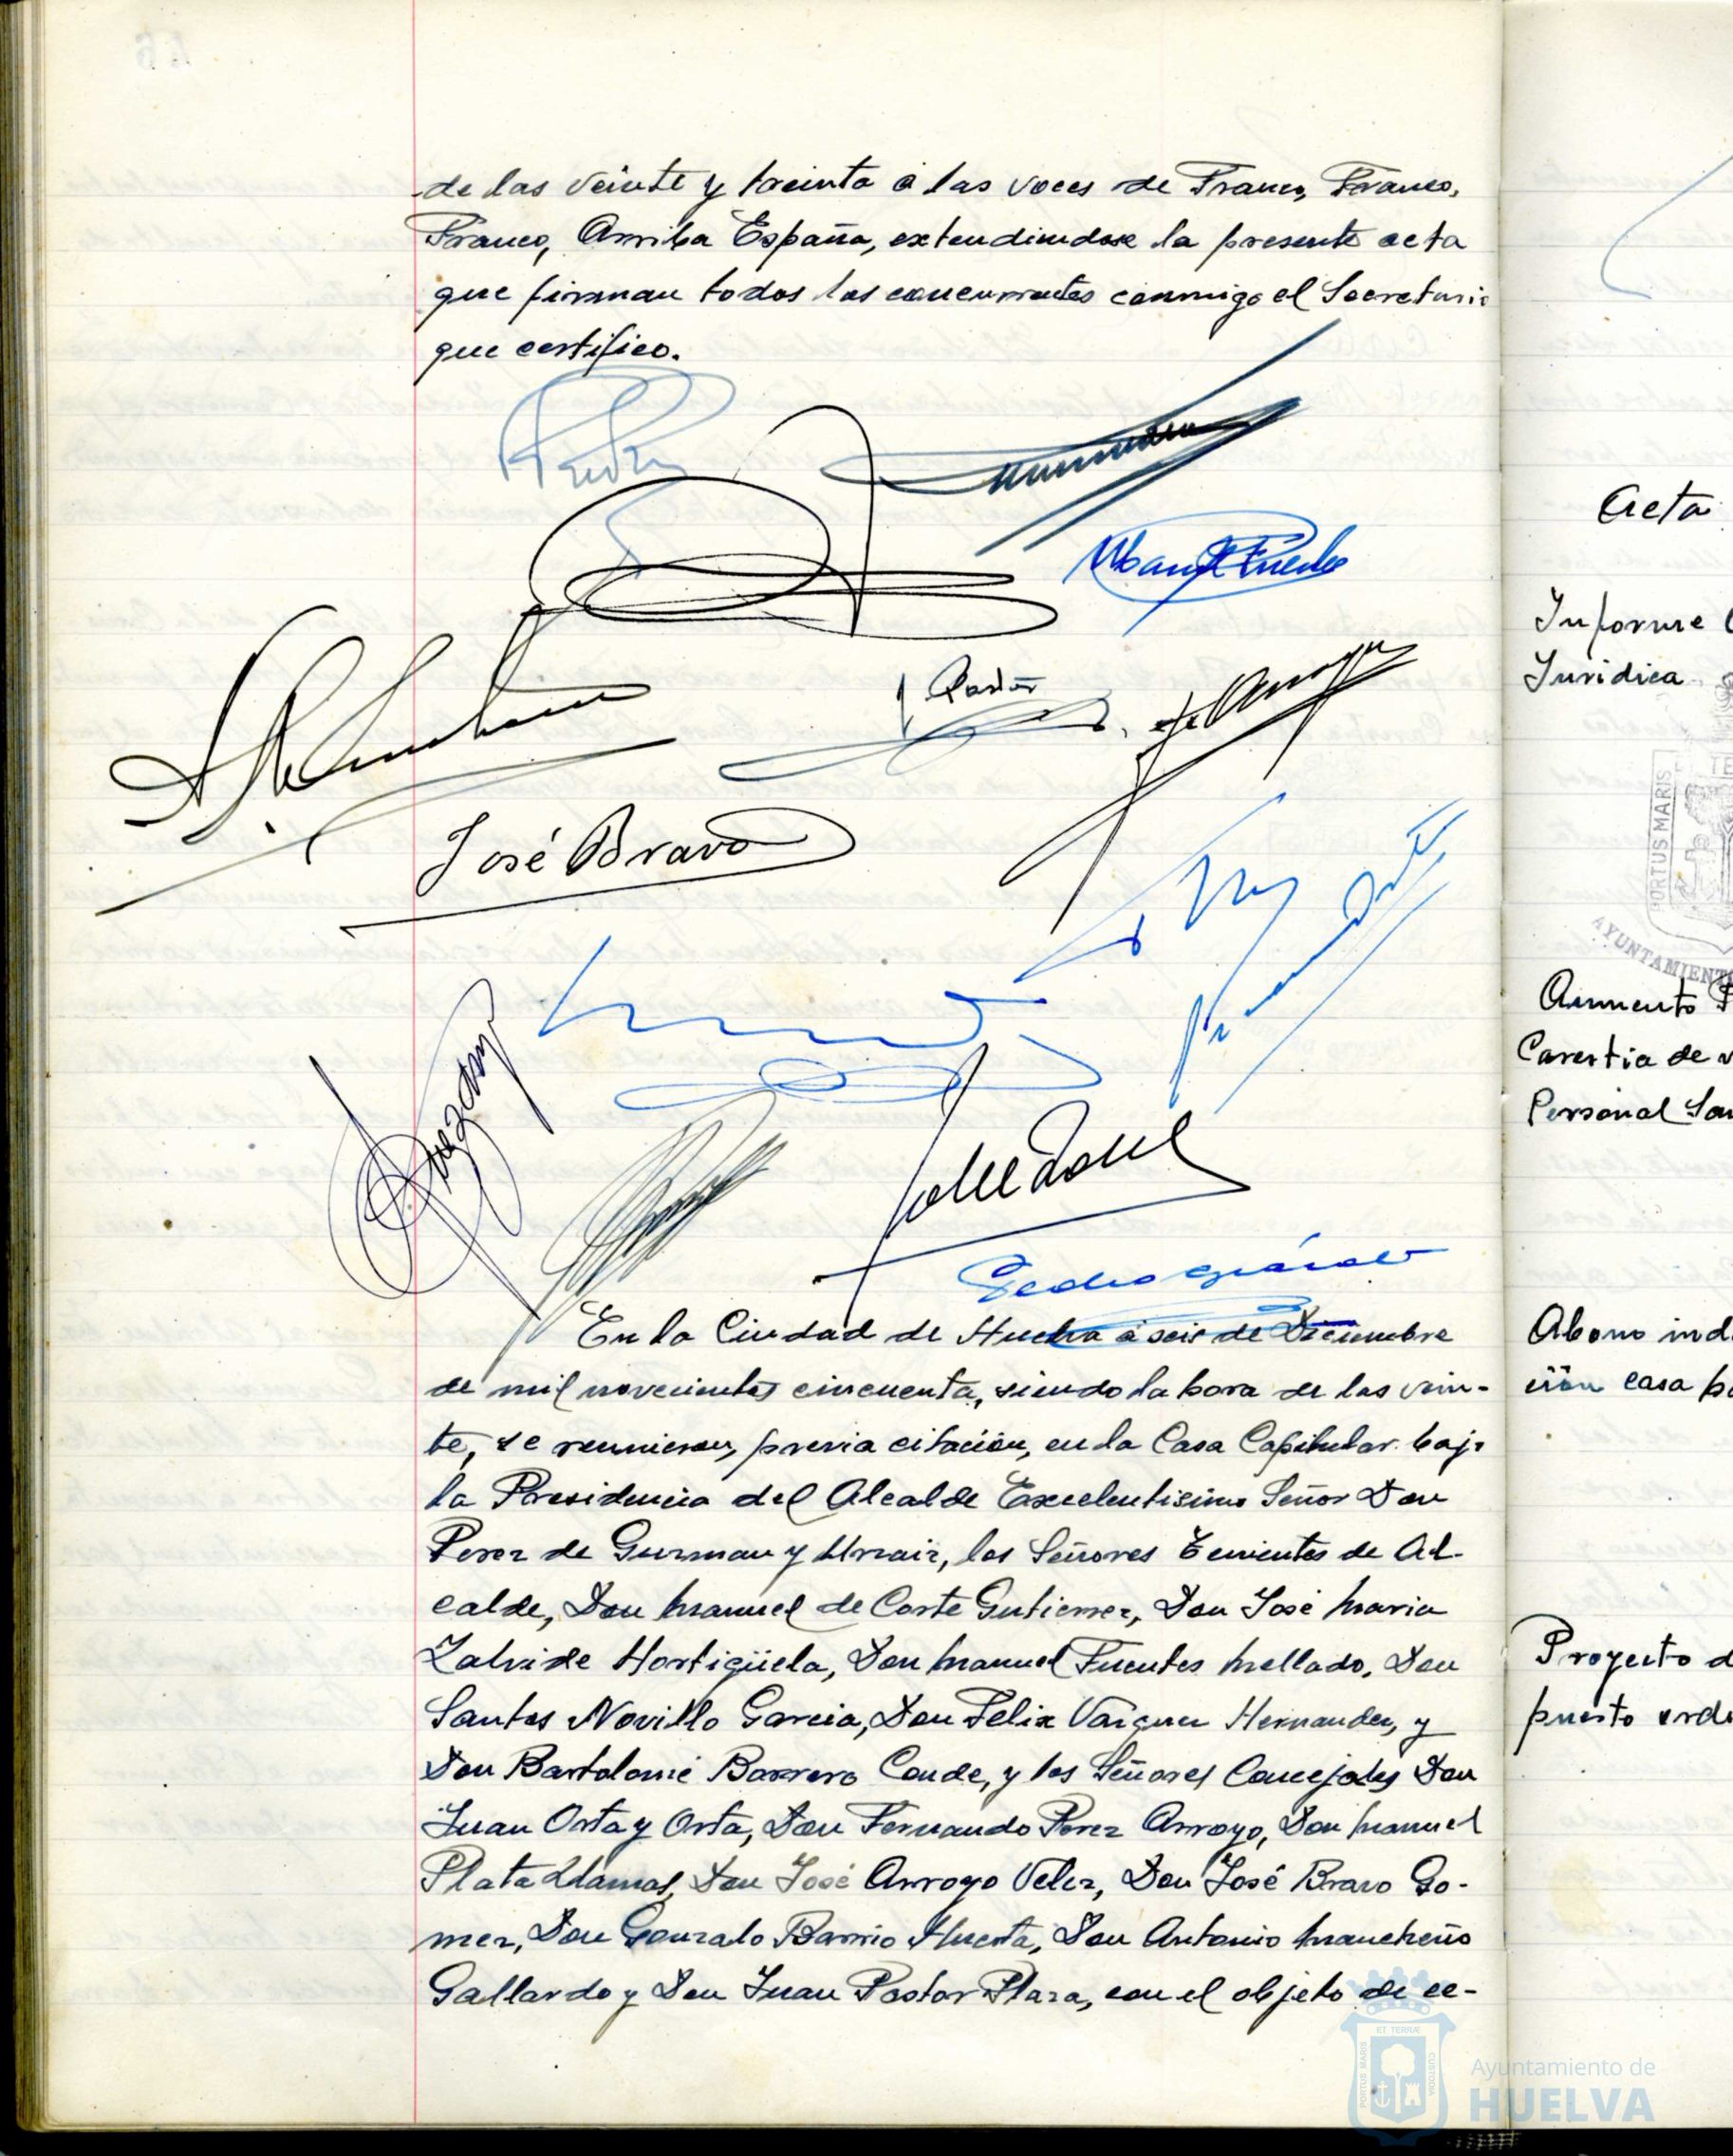 de las veinte y treinta á las voces de Franco, Franco,
Franco, Arriba España, extendiendose la presente acta
que firman todos los concurrentes conmigo el Secretario
que certifico.
Manuel Fuentes
J Pastor
José Bravo
Pedro
En la Ciudad de Huelva á seis de Diciembre
de mil novecientos cincuenta, siendo la hora de las vein-
te, se reunieron, previa citación, en la Casa Capitular bajo
la Presidencia del Alcalde Excelentisimo Señor Don
Perez de Guzman y Urzaiz, los Señores Tenientes de Al-
calde, Don Manuel de Corte Gutierrez, Don José Maria
Zalvide Hortigüela, Don Manuel Fuentes Mellado, Don
Santos Novillo Garcia, Don Felix Vazquez Hernandez, y
Don Bartolomé Barrero Conde, y los Señores Concejales Don
Juan Orta y Orta, Don Fernando Perez Arroyo, Don Manuel
Plata Llamas, Don José Arroyo Velez, Don José Bravo Go-
mez, Don Gonzalo Barrio Huerta, Don Antonio Mancheño
Gallardo y Don Juan Pastor Plaza, con el objeto de ce-
Acta
Informe
Juridica
PORTUS MARIS
AYUNTAMIENTO
Aumento
Carestia de
Personal
Abono
casa
Proyecto
puesto
ET TERRÆ
PORTUS MARIS
CUSTODIA
Ayuntamiento de
HUELVA